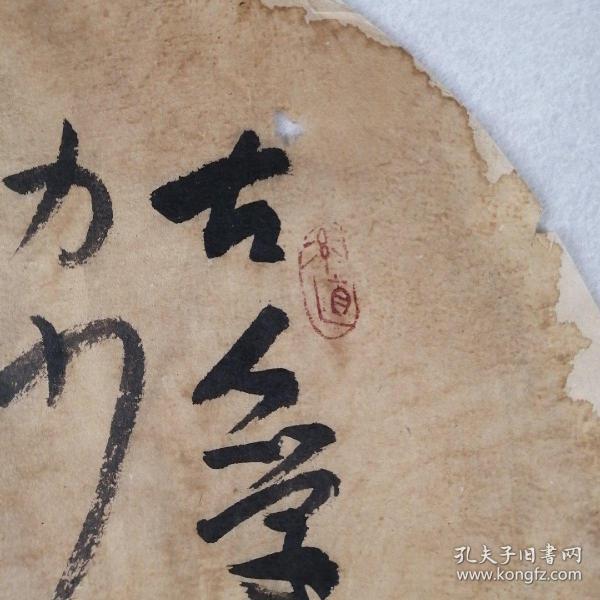 古人学
力少
孔夫子旧书网
www.kongfz.com